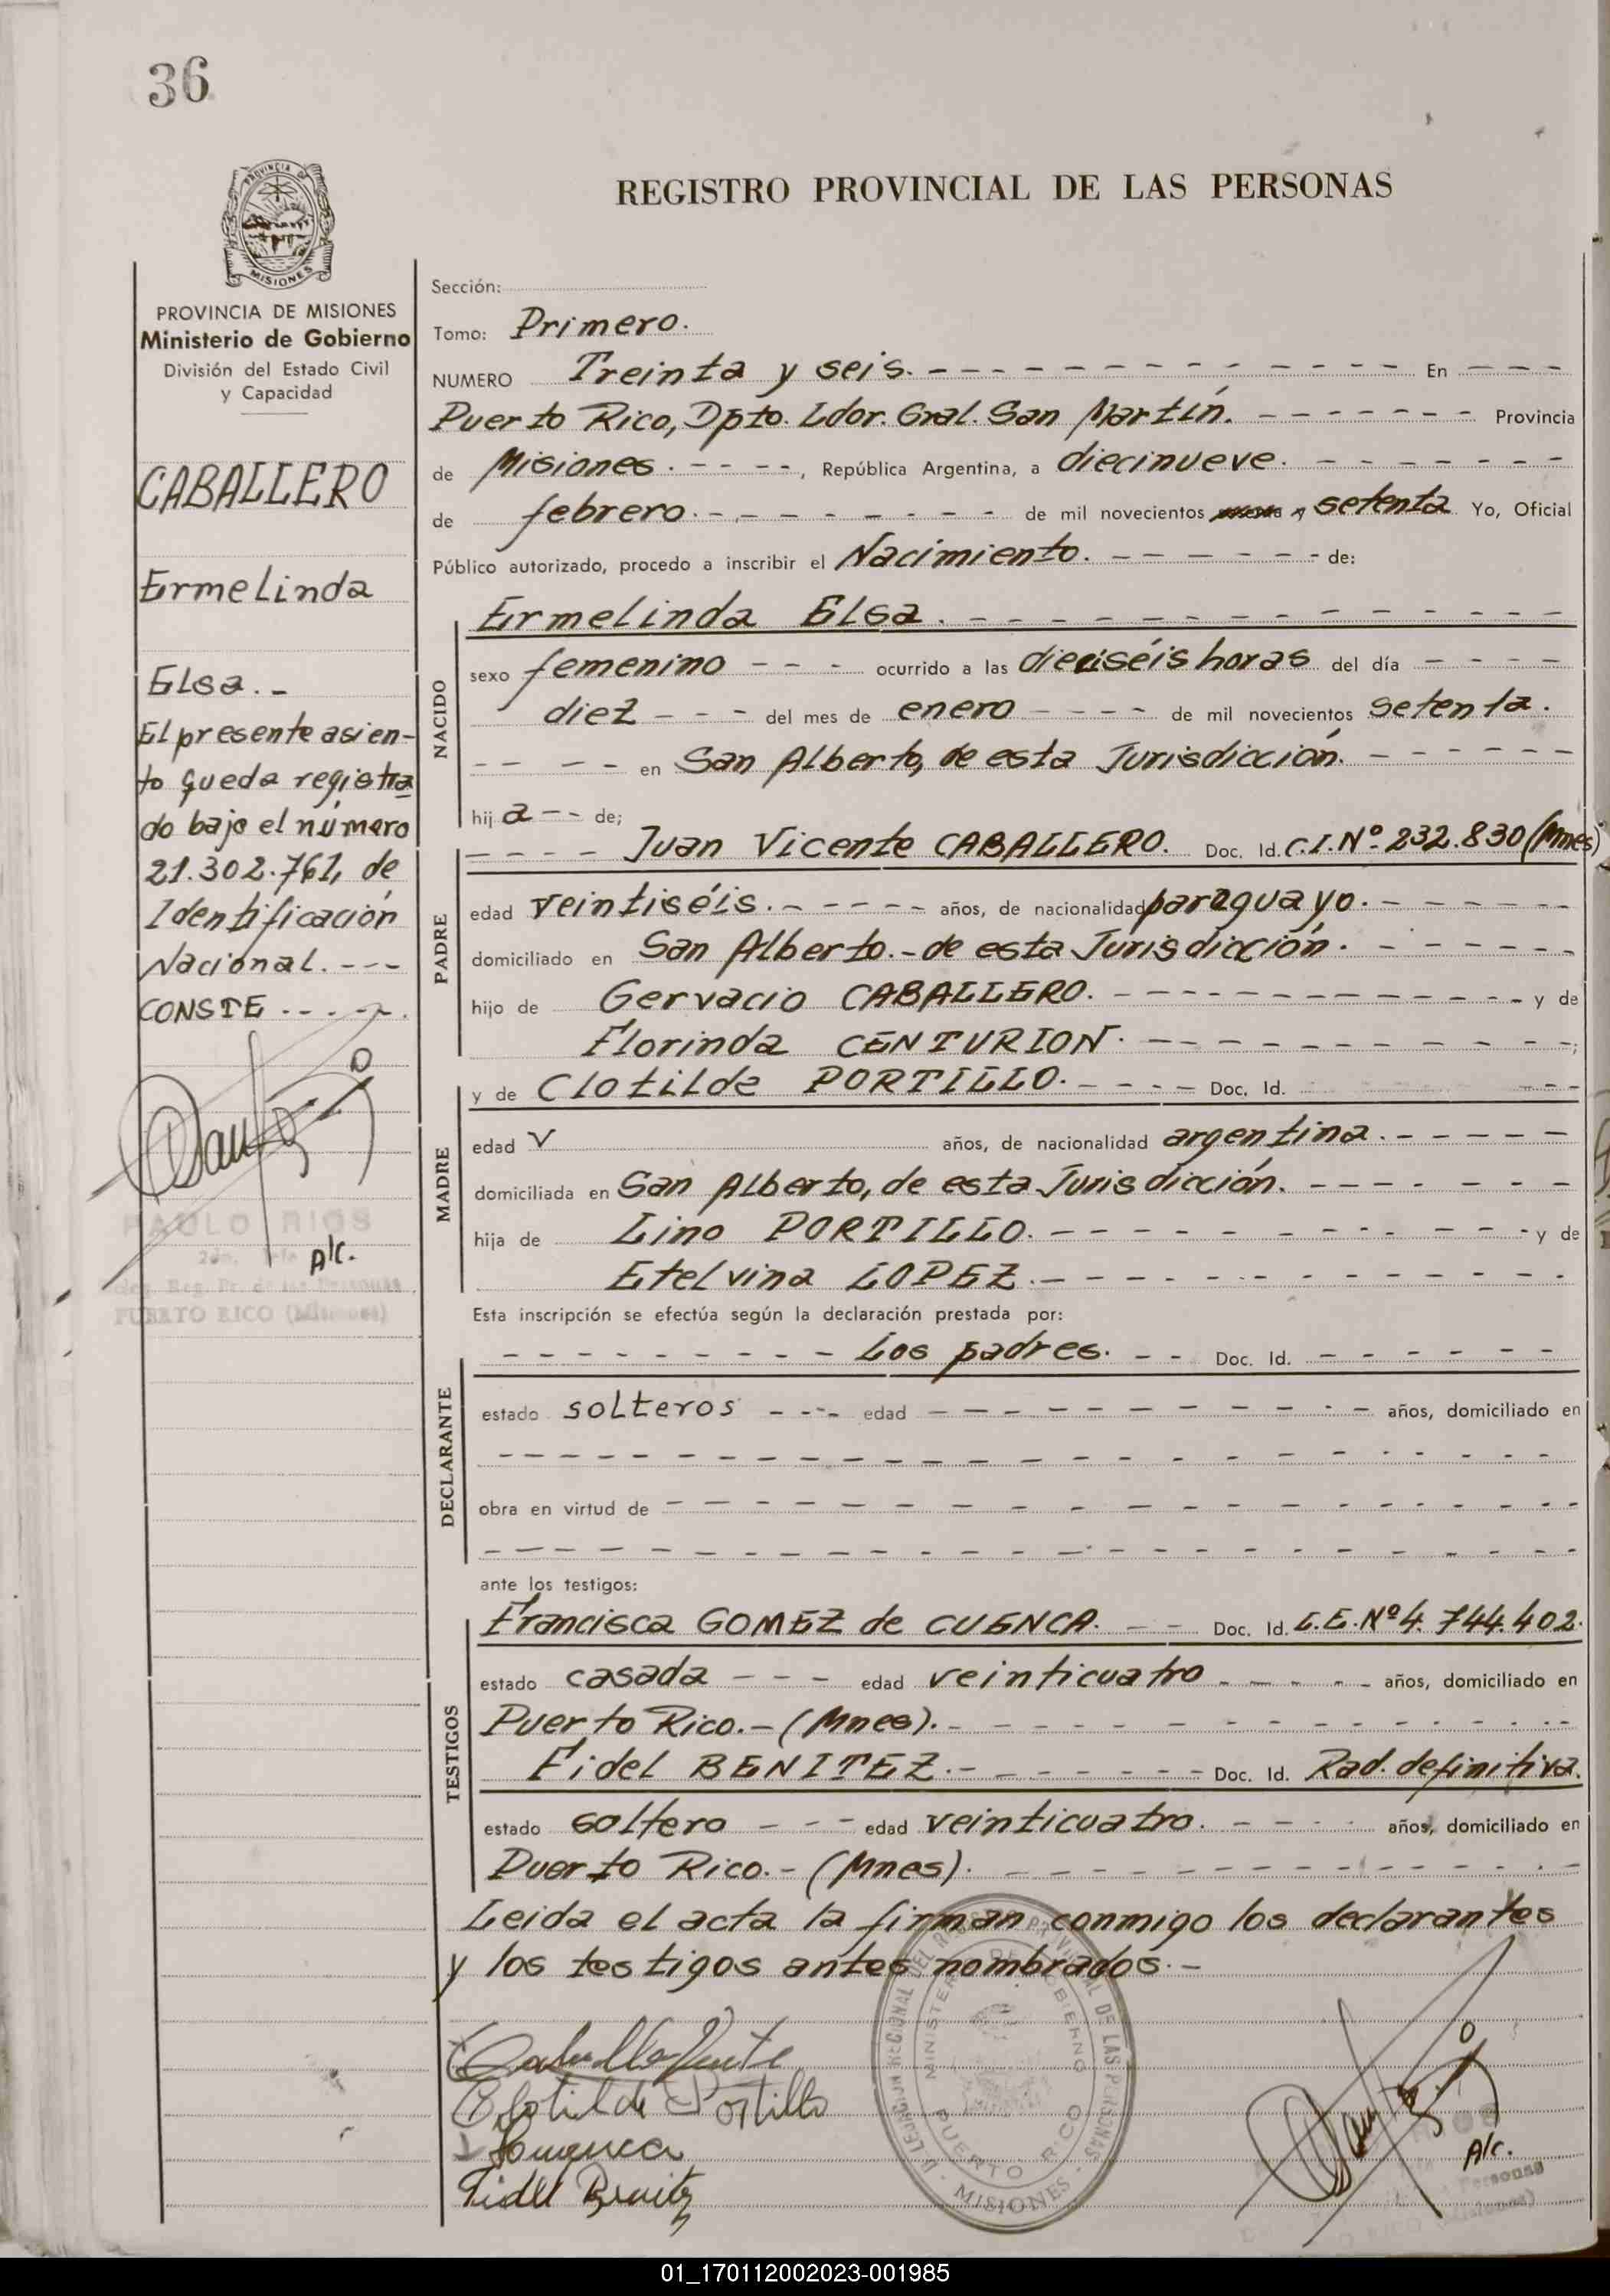 36
REGISTRO PROVINCIAL DE LAS PERSONAS
PROVINCIA DE
MISIONES
PROVINCIA DE MISIONES
Ministerio de Gobierno
División del Estado Civil
y Capacidad
CABALLERO
Ermelinda
Elsa.-
El presente asien-
to queda registra
do bajo el número
21.302.761, de
Identificación
Nacional. ---
CONSTE -----.
PAULO RIOS
A/c.
PUERTO RICO (Misiones)
Sección:
Tomo: Primero.
NUMERO Treinta y seis. - - - En - - -
Puerto Rico, Dpto. Ldor. Gral. San Martín. - - - Provincia
de Misiones. - - - -, República Argentina, a diecinueve. - - -
de febrero. - - - de mil novecientos setenta Yo, Oficial
Público autorizado, procedo a inscribir el Nacimiento. - - - de:
NACIDO
Ermelinda Elsa. - - -
sexo femenino - - - ocurrido a las dieciséis horas del día - - - -
diez - - - del mes de enero - - - - de mil novecientos setenta.
- - - - en San Alberto, de esta Jurisdicción. - - -
hij a - - de;
PADRE
- - - - Juan Vicente CABALLERO. Doc. Id. C.I. Nº 232.830 (Mnes)
edad veintiséis. - - - - - años, de nacionalidad paraguayo. - - -
domiciliado en San Alberto.- de esta Jurisdicción. - - -
hijo de Gervacio CABALLERO. - - - y de
Florinda CENTURION. - - - ;
MADRE
y de Clotilde PORTILLO. - - - - Doc. Id. - -
edad v años, de nacionalidad argentina. - - - - -
domiciliada en San Alberto, de esta Jurisdicción. - - -
hija de Lino PORTILLO. - - - y de
Etelvina LOPEZ. - - -
Esta inscripción se efectúa según la declaración prestada por:
DECLARANTE
- - - Los padres. - - Doc. Id. - - -
estado solteros - - - - edad - - - años, domiciliado en
- - -
obra en virtud de - - -
- - -
ante los testigos:
TESTIGOS
Francisca GOMEZ de CUENCA. - - Doc. Id. L.E. Nº 4.744.402.
estado casada - - - edad veinticuatro - - - - - años, domiciliado en
Puerto Rico.- (Mnes). - - -
Fidel BENITEZ. - - - Doc. Id. Rad. definitiva.
estado soltero - - - edad veinticuatro. - - - - años, domiciliado en
Puerto Rico.- (Mnes). - - -
Leida el acta la firman conmigo los declarantes
y los testigos antes nombrados.-
Caballero Vicente
Clotilde Portillo
Fidel Benitez
DELEGACION REGIONAL DEL REGISTRO PROVINCIAL DE LAS PERSONAS
MINISTERIO DE GOBIERNO
PUERTO RICO
- MISIONES -
A/c.
01_170112002023-001985